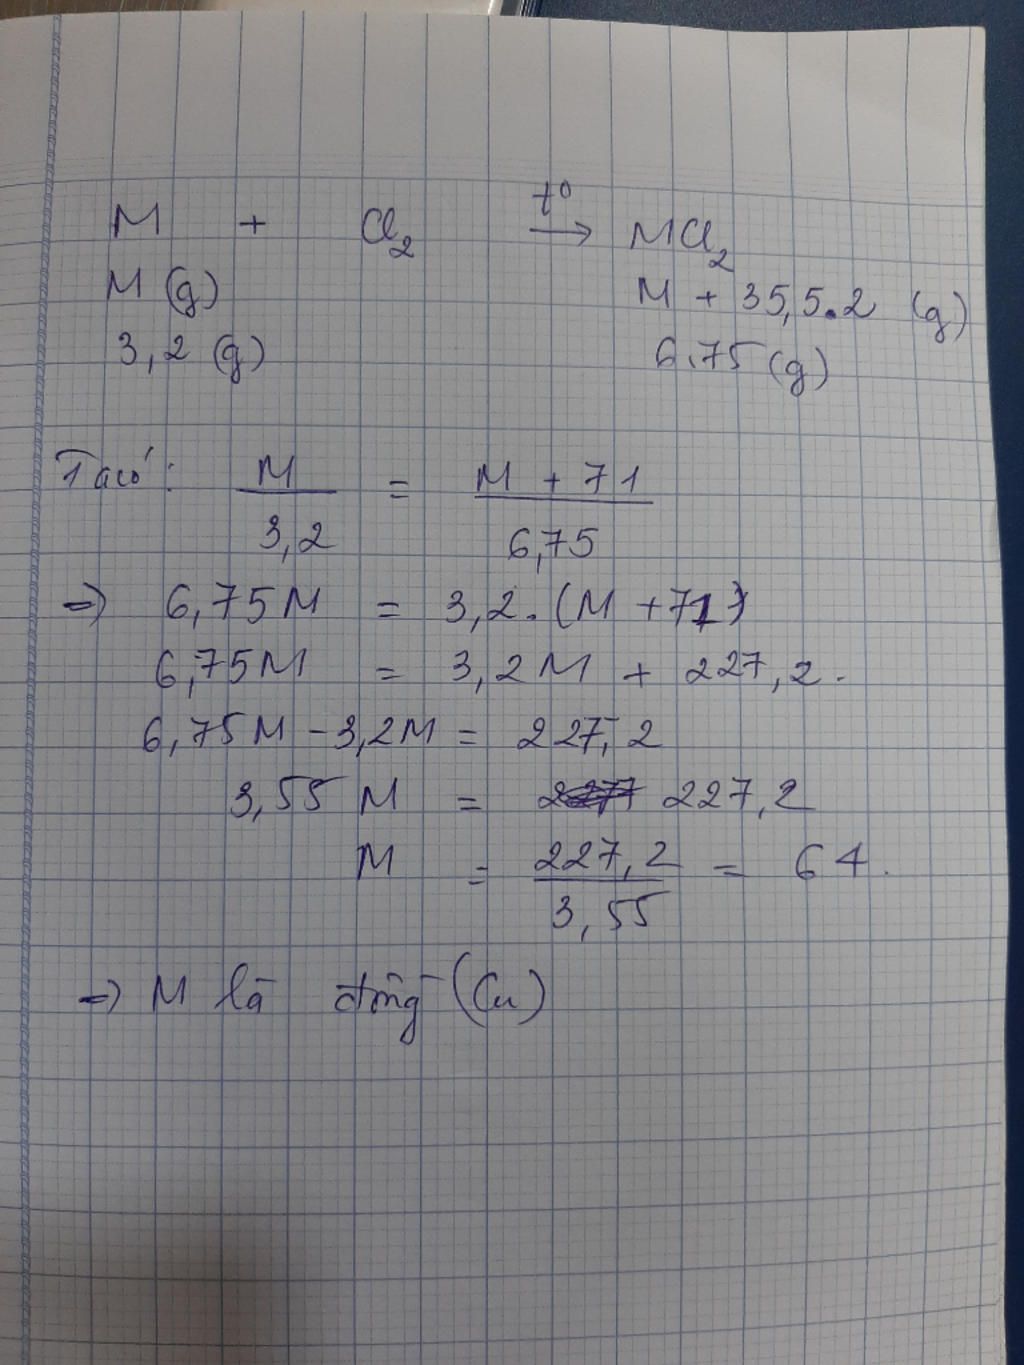 M + Cl₂ t⁰→ MCl₂
M (g) M + 35,5.2 (g)
3,2 (g) 6,75 (g)
Ta có: M/3,2 = M + 71/6,75
=> 6,75M = 3,2.(M + 71)
6,75M = 3,2M + 227,2.
6,75M - 3,2M = 227,2
3,55 M = 227,2
M = 227,2/3,55 = 64.
=> M là đồng (Cu)